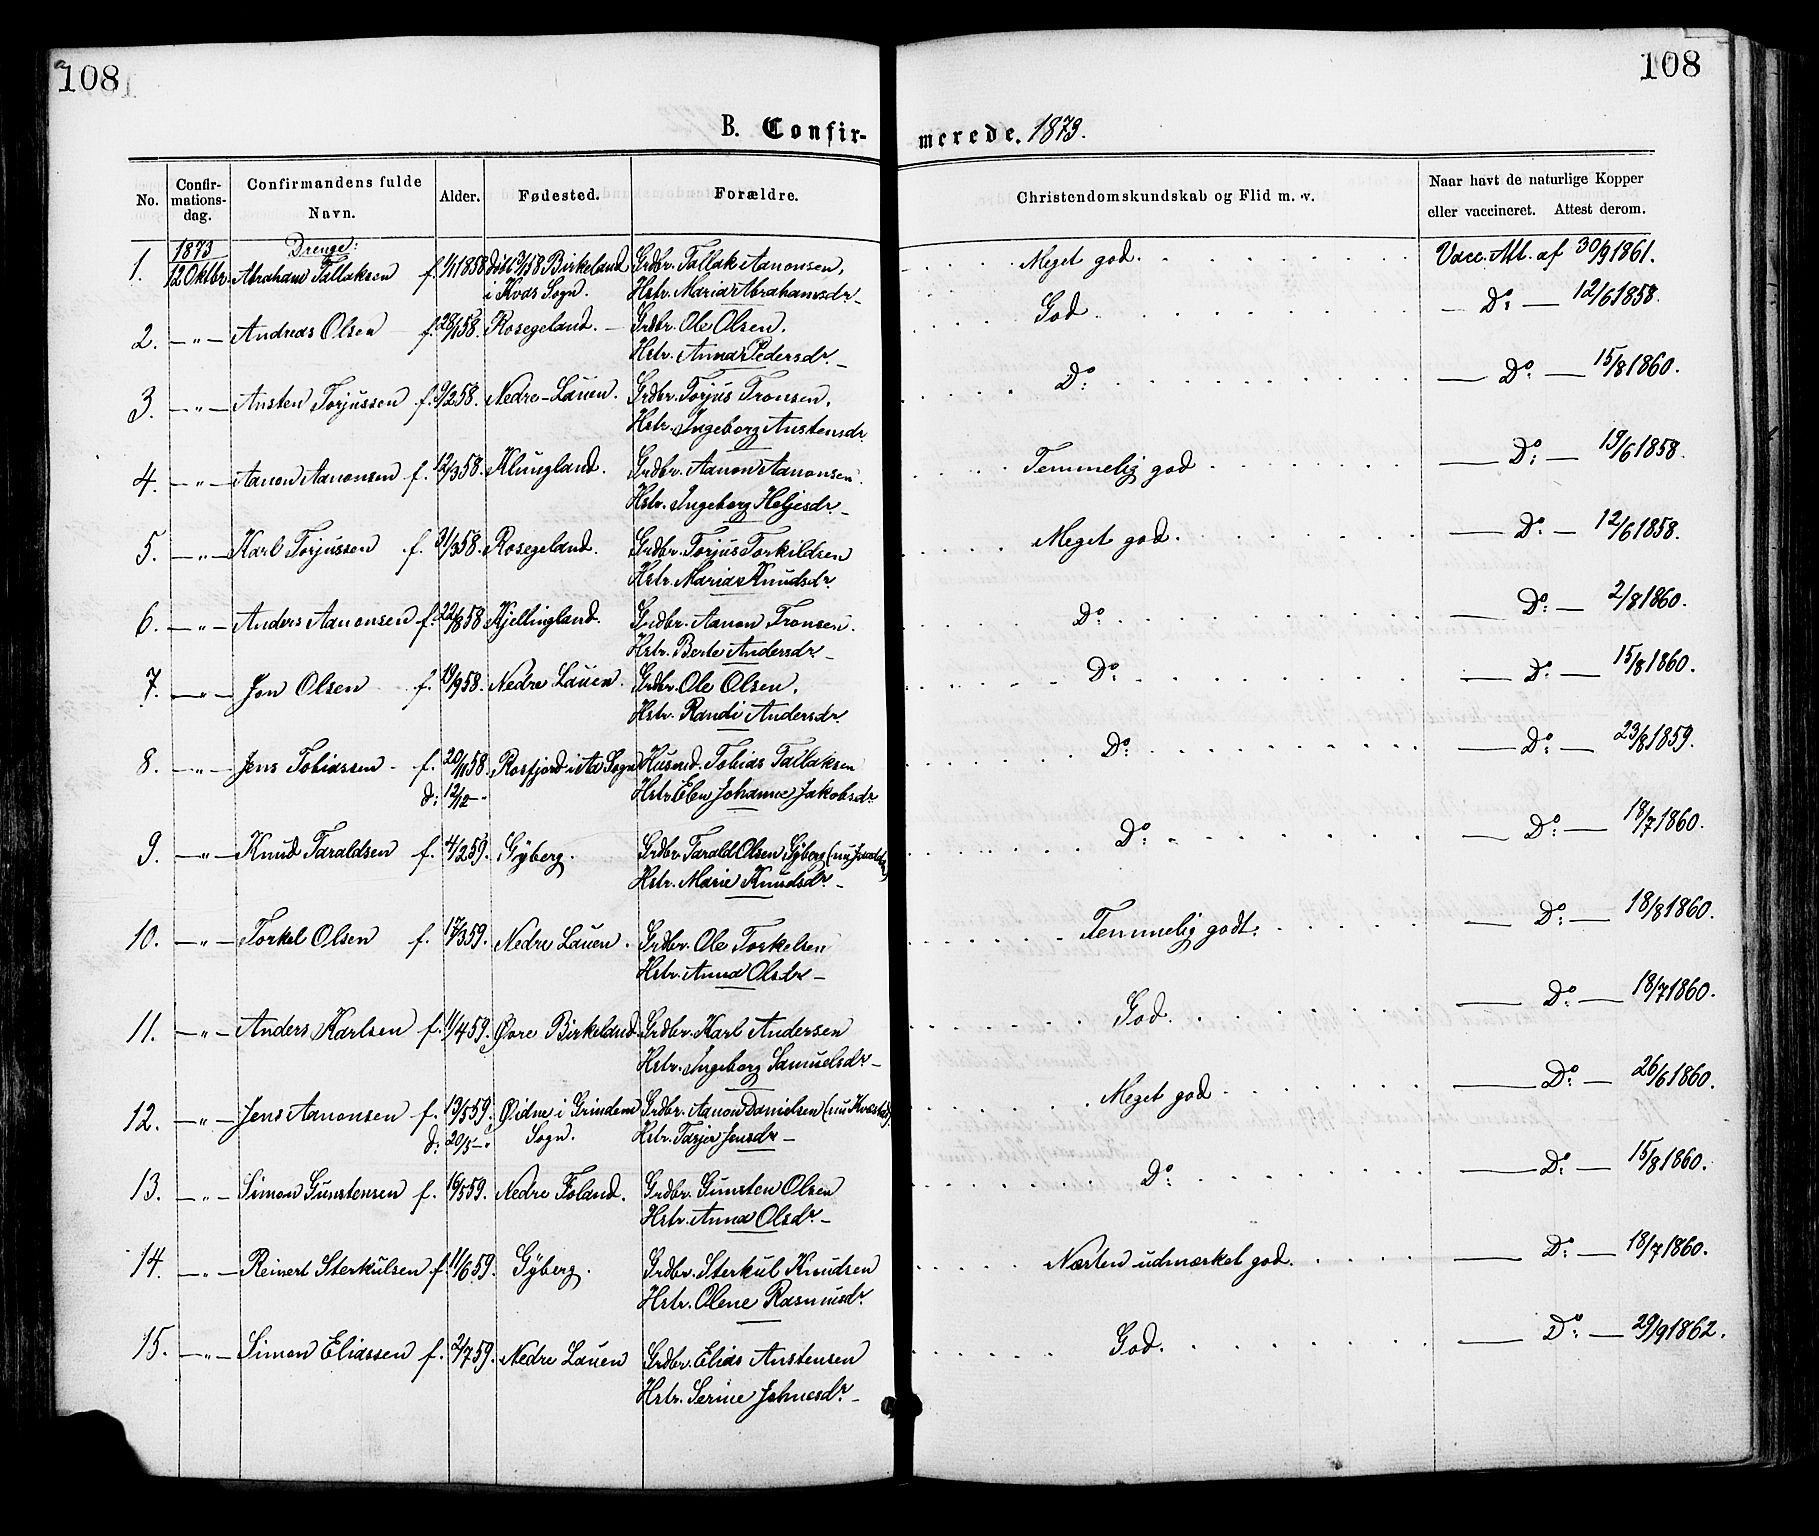 108
108
B. Confir-
merede. 1873.
No.
Confir-
mations-
dag.
Confirmandens fulde
Navn.
Alder.
Fødested.
Forældre.
Christendomskundskab og Flid m. v.
Naar havt de naturlige Kopper
eller vaccineret. Attest derom.
1873
Drenge:
1. 12 Oktbr. Abraham Tallaksen f. 1/1 1858 Birkeland Grdbr. Tallak Aanonsen, Meget god. Vacc. Att. af 30/9 1861.
i Kvas Sogn. Hstr. Maria Abrahamsdr.
2. —"— Andreas Olsen f. 28/1 58. Rosegeland. — Grdbr. Ole Olsen. God. — Do: — 12/6 1858.
Hstr. Anna Pedersdr. —
3. —"— Austen Torjussen f. 9/2 58. Nedre-Lauen. Grdbr. Torjus Tronsen. Do: — Do: — 15/8 1860.
Hstr. Ingeborg Austensdr.
4. —"— Aanon Aanonsen f. 12/3 58. Klungland. Grdbr. Aanon Aanonsen. Temmelig god — Do: — 19/6 1858.
Hstr. Ingeborg Heljesdr. —
5. —"— Karl Torjussen f. 31/3 58. Rosegeland. Grdbr. Torjus Torkildsen Meget god. — Do: — 12/6 1858.
Hstr. Maria Knudsdr.
6. —"— Anders Aanonsen f. 22/8 58 Kjellingland. Grdbr. Aanon Tronsen. Do: — Do: — 2/8 1860.
Hstr. Berte Andersdr. —
7. —"— Jon Olsen f. 19/9 58. Nedre Lauen. Grdbr. Ole Olsen. Do: — Do: — 15/8 1860.
Hstr. Randi Andersdr.
8. —"— Jens Tobiassen f. 20/11 58. Rosfjord i Aa Sogn Husmd. Tobias Tallaksen Do: — Do: — 23/8 1859.
d: 12/12 — Hstr. Elen Johanne Jakobsdr.
9. —"— Knud Taraldsen f. 4/2 59. Gyberg. Grdbr. Tarald Olsen Gyberg (nu Do: — Do: — 18/7 1860.
Hstr. Marie Knudsdr. —
10. —"— Torkel Olsen f. 17/3 59. Nedre Lauen. Grdbr. Ole Torkelsen Temmelig godt. — Do: — 18/8 1860.
Hstr. Anna Olsdr —
11. —"— Anders Karlsen f. 11/4 59. Øvre Birkeland Grdbr. Karl Andersen God. — Do: — 18/7 1860.
Hstr. Ingeborg Samuelsdr. —
12. —"— Jens Aanonsen f. 13/5 59. Øidne i Grindem Grdbr. Aanon Danielsen (nu Meget god — Do: — 26/6 1860.
d: 20/5 — Sogn. Hstr. Tarjer Jensdr —
13. —"— Simon Gunstensen f. 16/5 59. Nedre Foland. Grdbr. Gunsten Olsen Do: — Do: — 15/8 1860.
Hstr. Anna Olsdr. —
14. —"— Reinert Sterkulsen f. 11/6 59. Gyberg. Grdbr. Sterkul Knudsen Næsten udmærket god. — Do: — 18/7 1860.
Hstr. Olene Rasmusdr.
15. —"— Simon Eliassen f. 2/7 59. Nedre Lauen Grdbr. Elias Austensen God. — Do: — 29/9 1862.
Hstr. Serine Johnesdr. —